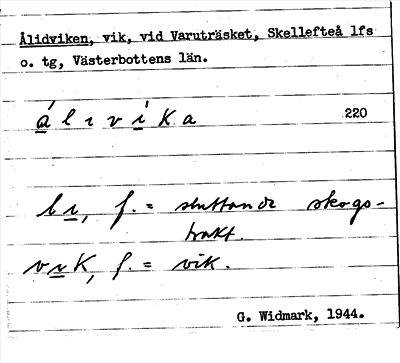 Ålidviken, vik, vid Varuträsket, Skellefteå lfs
o. tg, Västerbottens län.
á l ı v í k a 220
lı, f. = sluttande skogs-
trakt.
vık, f. = vik.
G. Widmark, 1944.